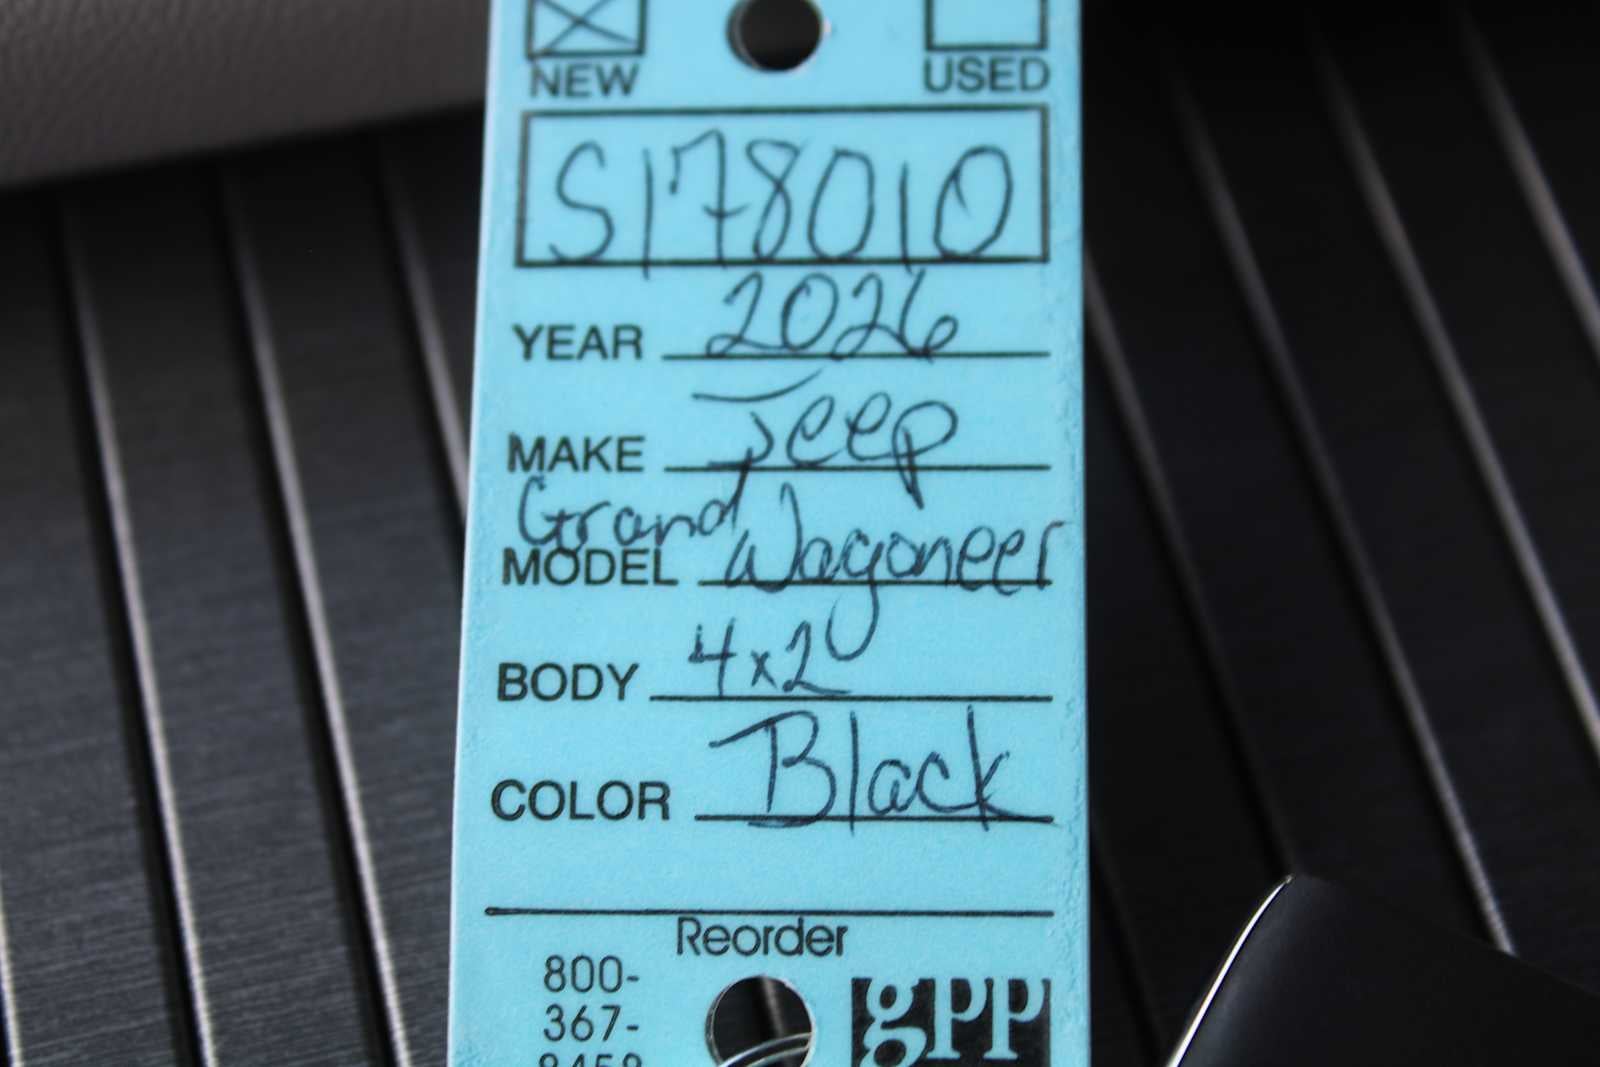 NEW USED
S178010
YEAR 2026
MAKE Jeep
Grand
MODEL Wagoneer
BODY 4x2
COLOR Black
Reorder
800-
367-
8458
gpp